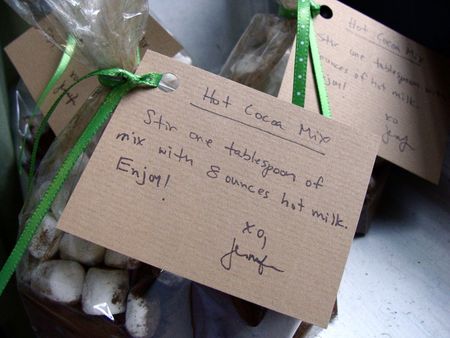 Hot Cocoa Mix
Stir one tablespoon of
mix with 8 ounces hot milk.
Enjoy!
xo,
Jennifer
Hot Cocoa Mix
Stir one tablespoon
ounces of hot milk.
xo